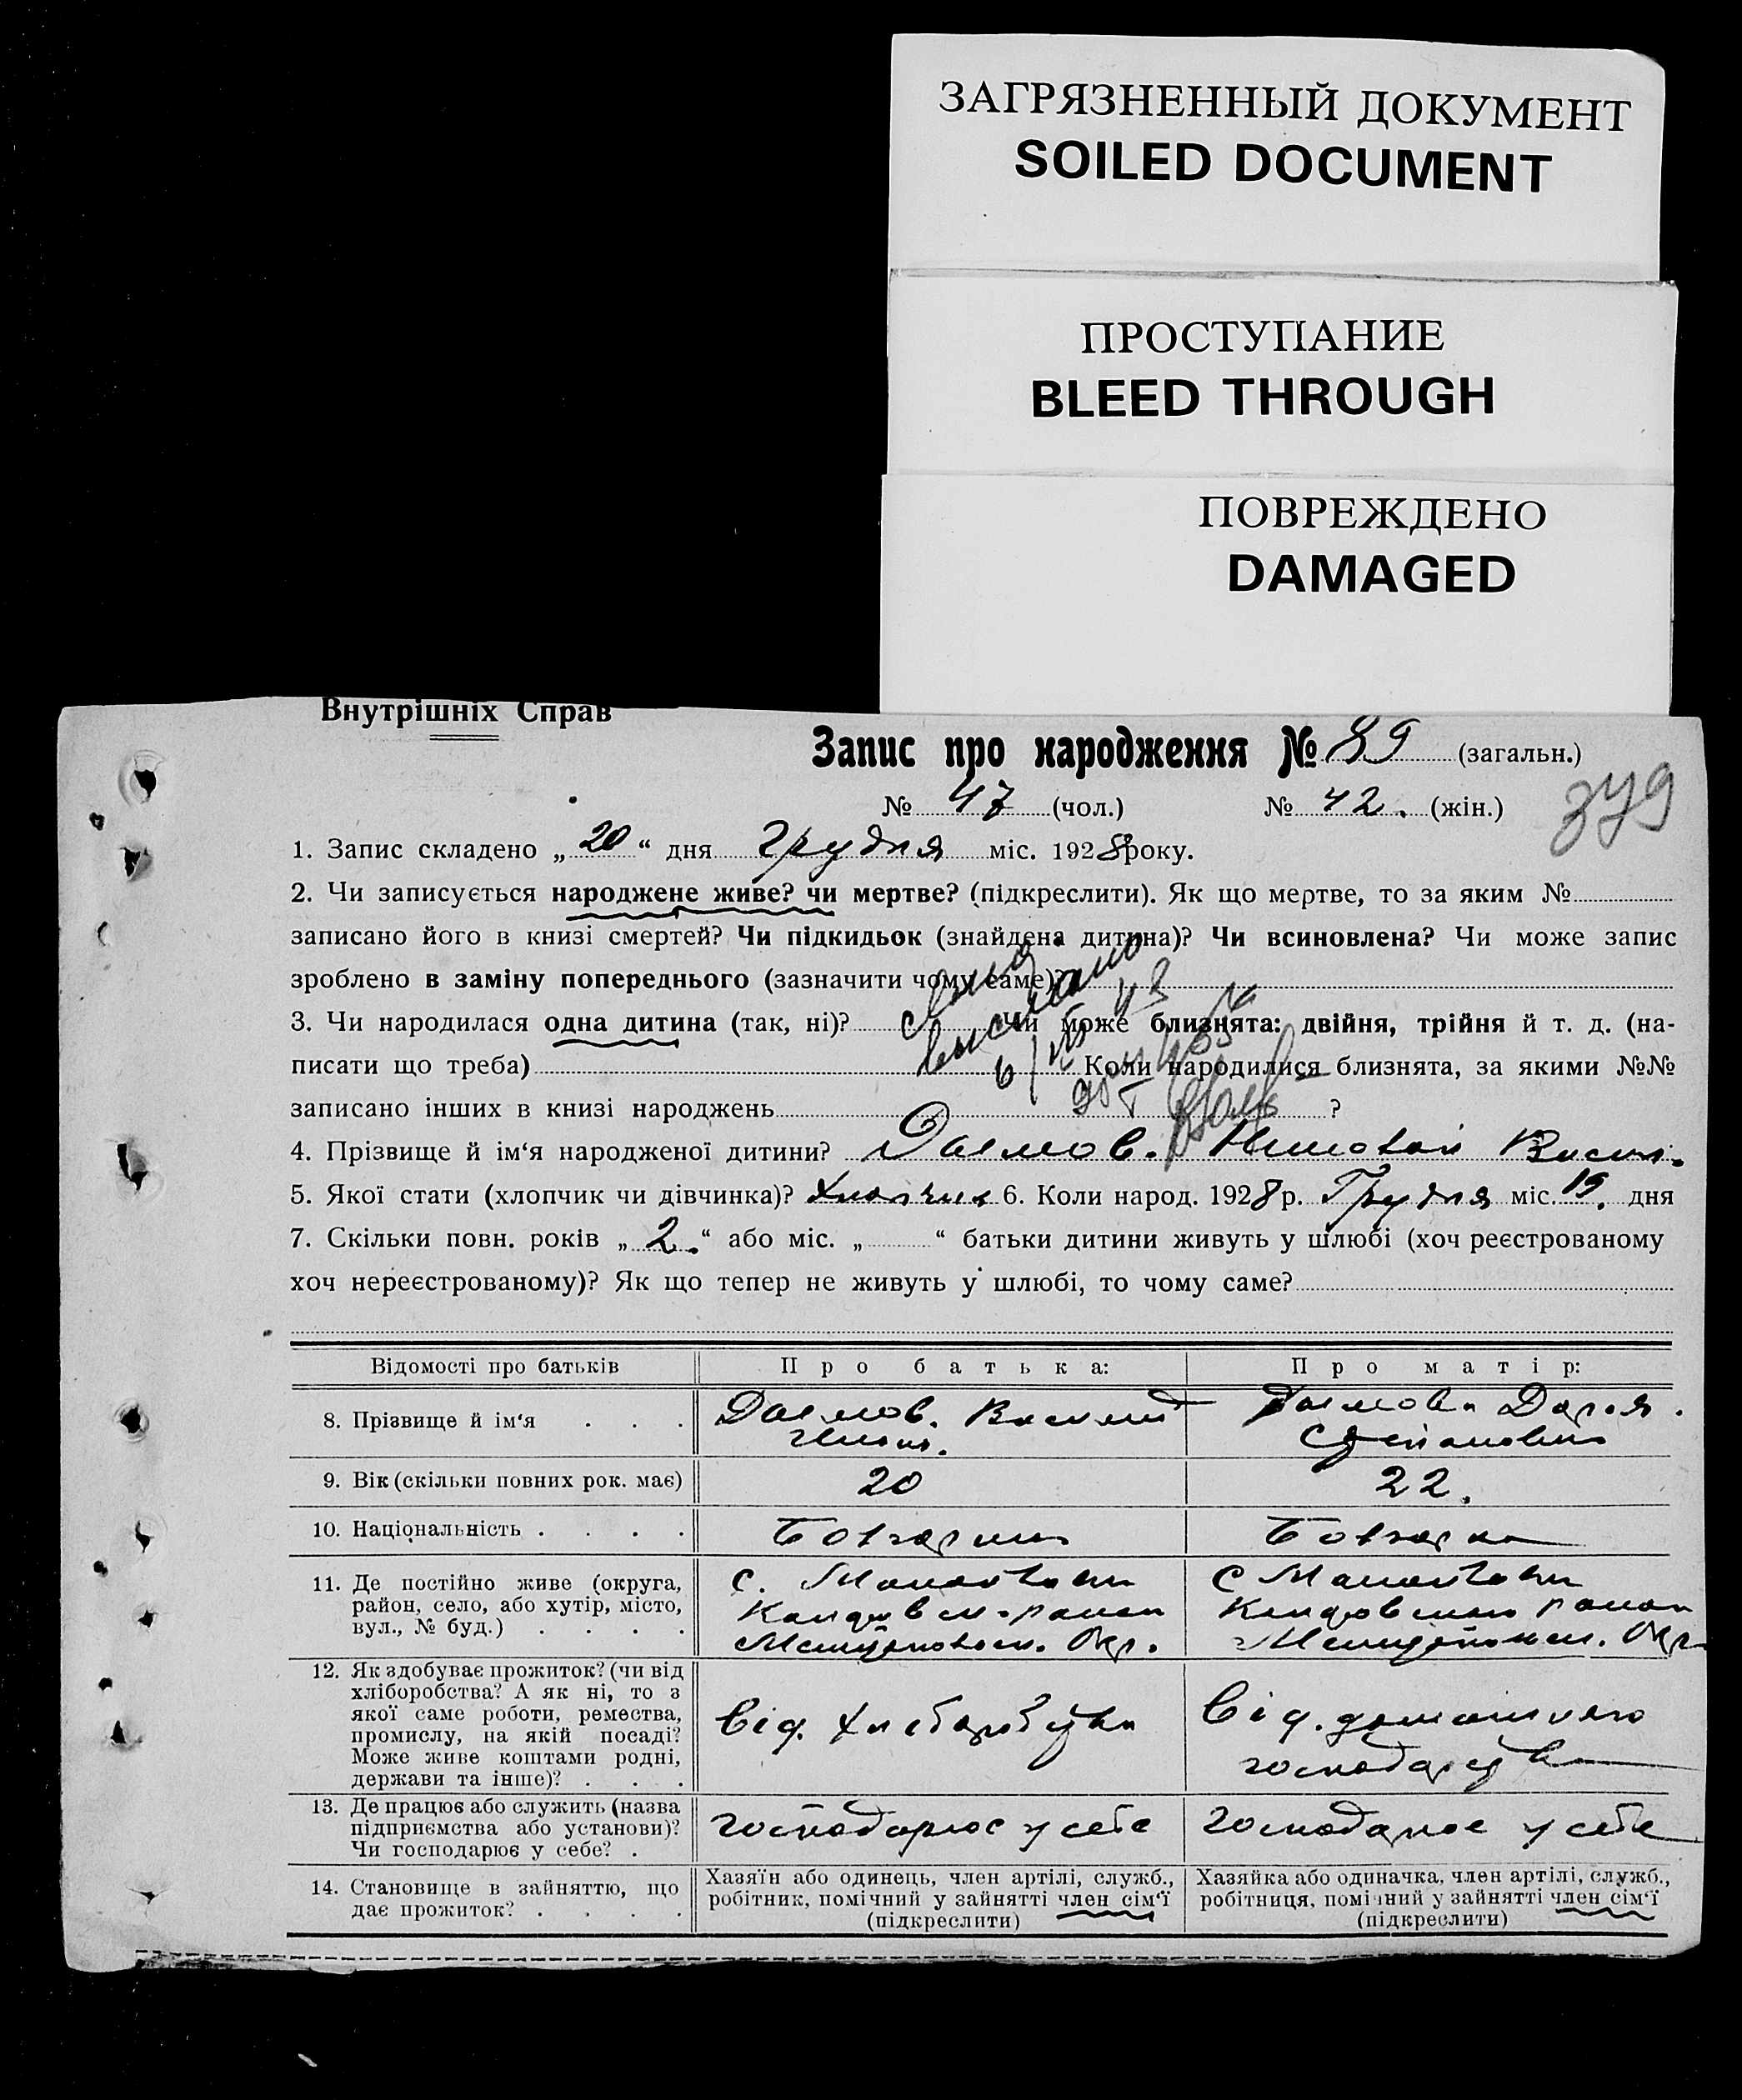 ЗАГРЯЗНЕННЫЙ ДОКУМЕНТ
SOILED DOCUMENT
ПРОСТУПАНИЕ
BLEED THROUGH
ПОВРЕЖДЕНО
DAMAGED
Внутрішніх Справ
Запис про народження № 89 (загальн.)
№ 47 (чол.) № 42. (жін.)
379
1. Запис складено „20“ дня Грудня міс. 1928 року.
2. Чи записується народжене живе? чи мертве? (підкреслити). Як що мертве, то за яким №
записано його в книзі смертей? Чи підкидьок (знайдена дитина)? Чи всиновлена? Чи може запис
зроблено в заміну попереднього (зазначити чому саме)?
3. Чи народилася одна дитина (так, ні)? Чи може близнята: двійня, трійня й т. д. (на-
писати що треба) Коли народилися близнята, за якими №№
записано інших в книзі народжень ?
4. Прізвище й ім'я народженої дитини?
5. Якої стати (хлопчик чи дівчинка)? Хлопчик 6. Коли народ. 1928 р. Грудня міс. 19. дня
7. Скільки повн. років „2.“ або міс. „ “ батьки дитини живуть у шлюбі (хоч реєстрованому
хоч нереєстрованому)? Як що тепер не живуть у шлюбі, то чому саме?
Відомості про батьків Про батька: Про матір:
8. Прізвище й ім'я . . . Василь Дар.я.
Степановна
9. Вік (скільки повних рок. має) 20 22.
10. Національність . . . . Болгарин Болгарка
11. Де постійно живе (округа, с. с
район, село, або хутір, місто, район район
вул., № буд.) . . . . Окр. Окр
12. Як здобуває прожиток? (чи від
хліборобства? А як ні, то з
якої саме роботи, ремества, Від. Хліборобства Від. домашнього
промислу, на якій посаді? господарства
Може живе коштами родні,
держави та інше)? . . .
13. Де працює або служить (назва
підприємства або установи)? господарює у себе господарює у себе
Чи господарює у себе? .
14. Становище в зайняттю, що Хазяїн або одинець, член артілі, служб., Хазяйка або одиначка, член артілі, служб.,
дає прожиток? . . . . робітник, помічний у зайнятті член сім'ї робітниця, помічний у зайнятті член сім'ї
(підкреслити) (підкреслити)